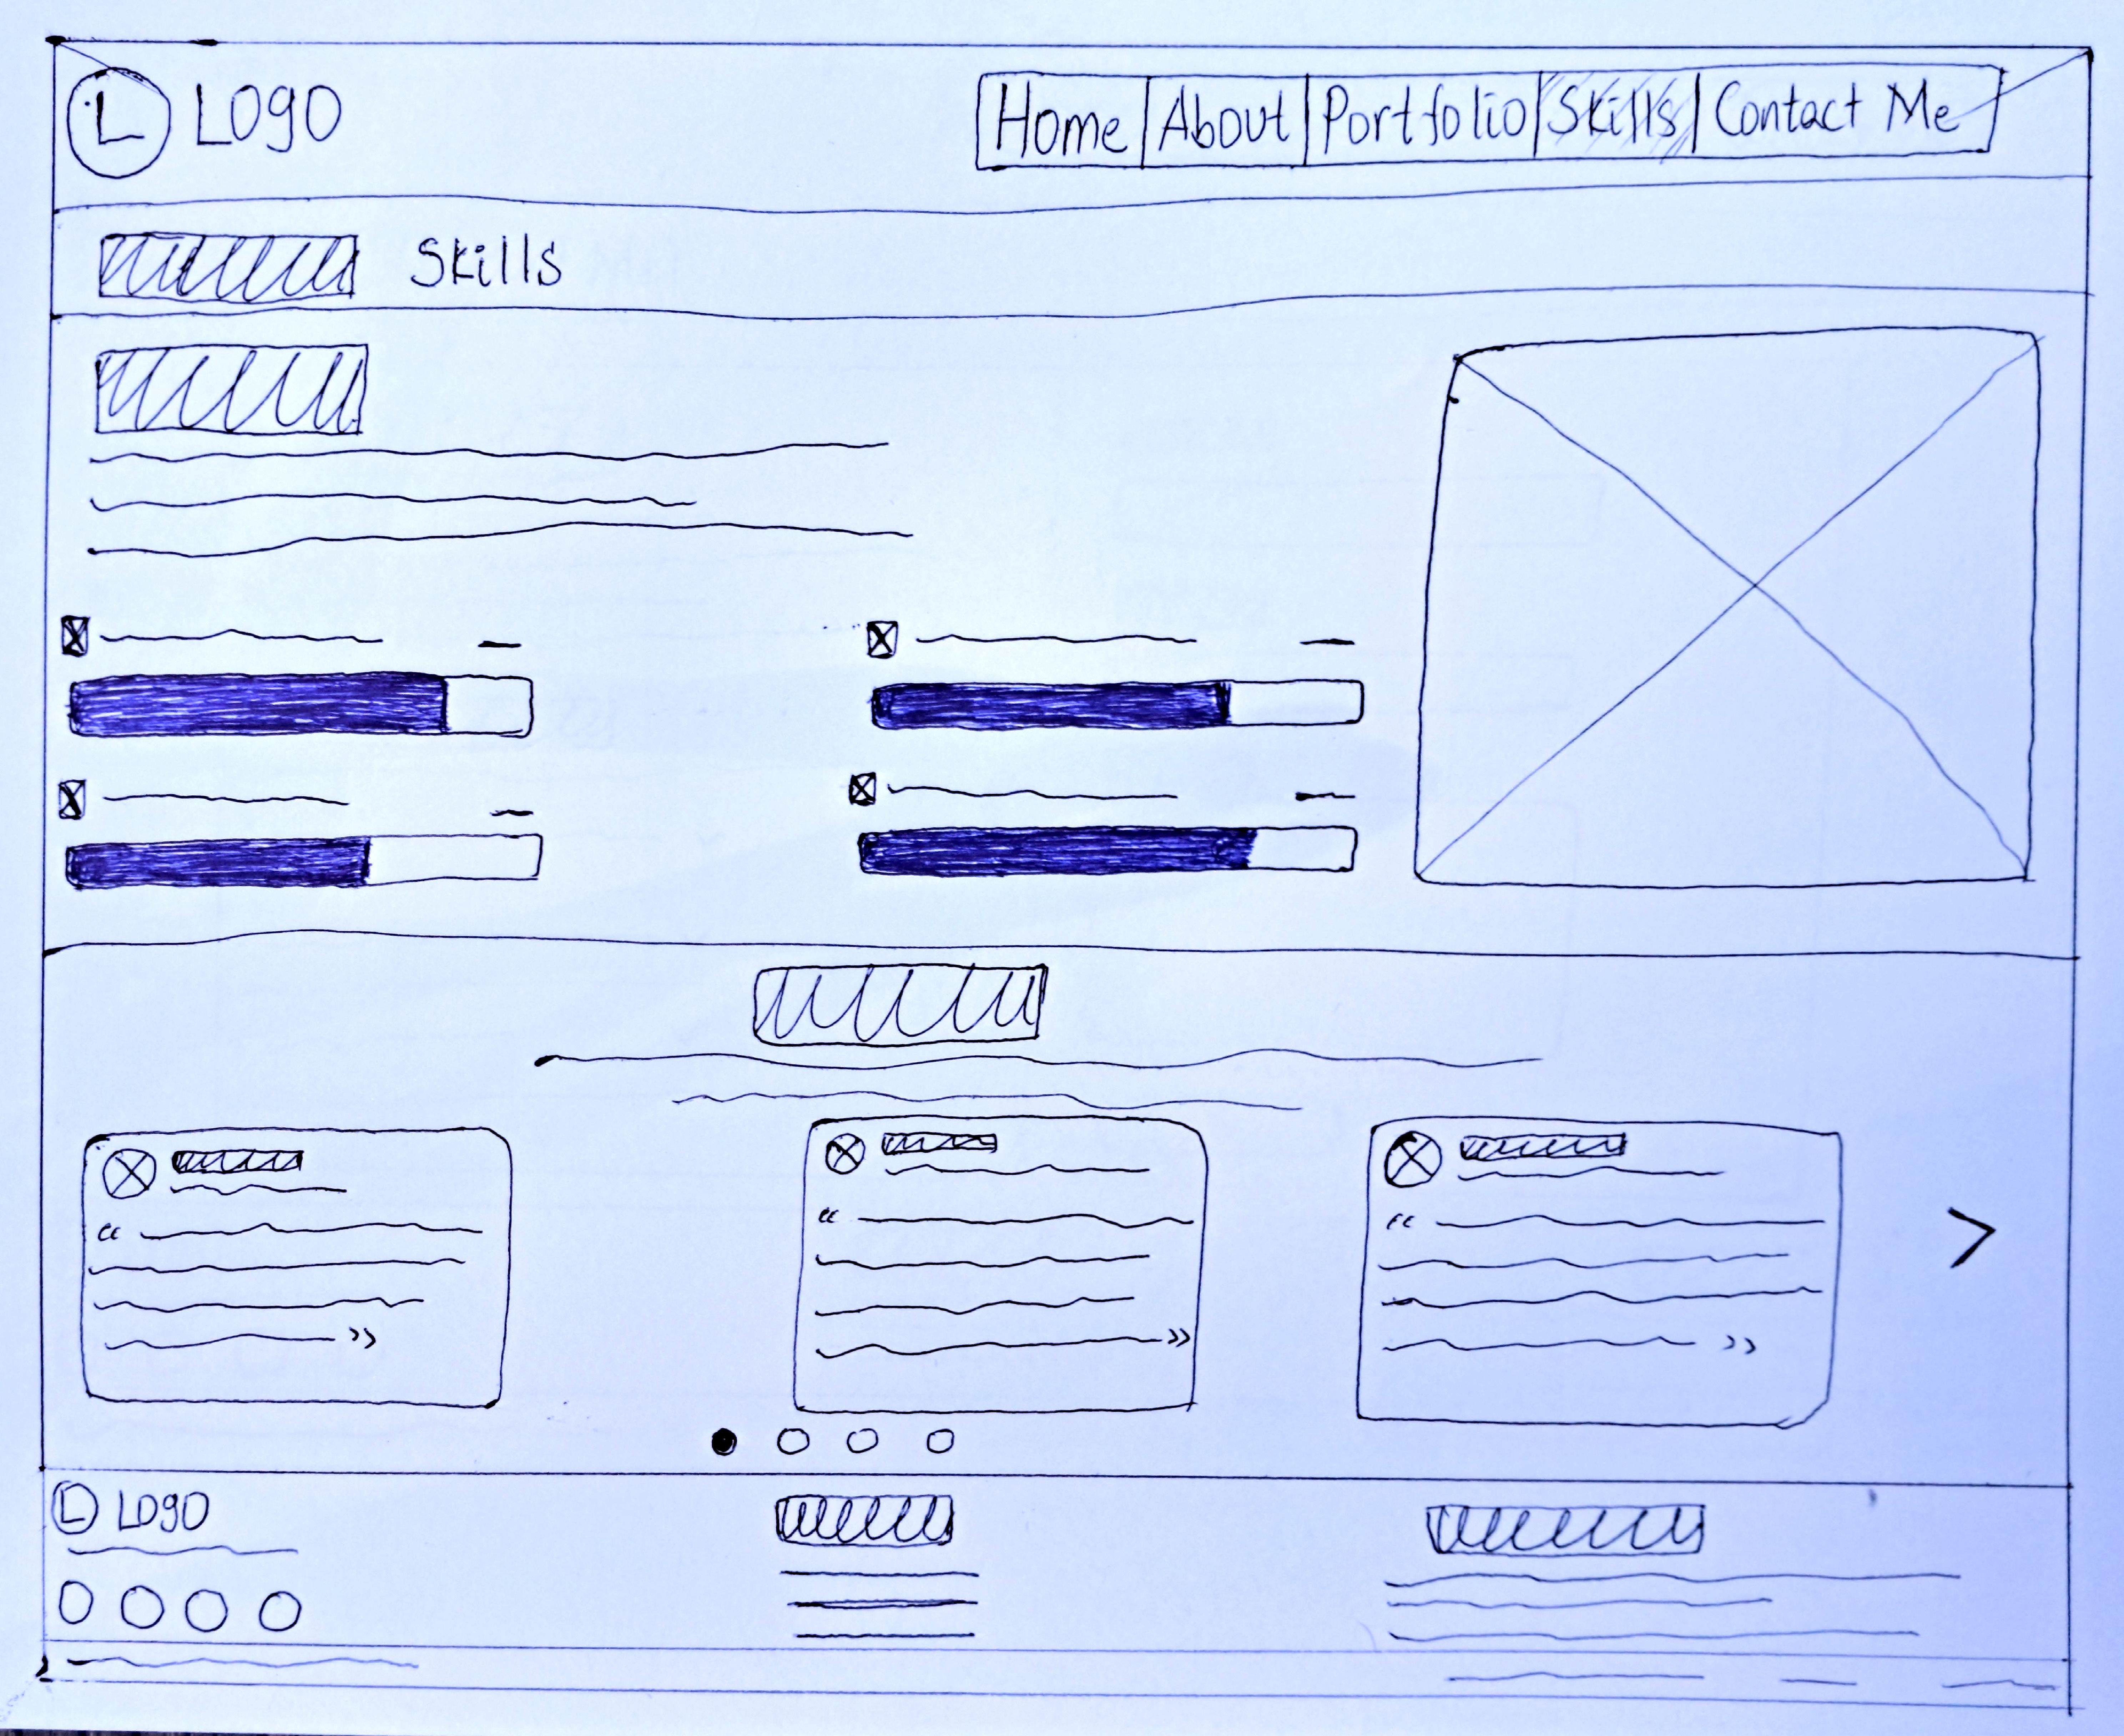 L Logo Home About Portfolio Skills Contact Me
Skills
“ “ “
” ” ”
>
L LOGO